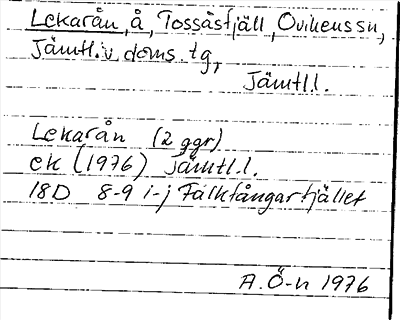 Lekarån, å, Tossåsfjäll, Ovikens sn,
Jämtl. v. doms. tg,
Jämtl.l.
Lekarån (2 ggr)
ek (1976) Jämtl.l.
18D 8-9 i-j Falkfångarfjället
A. Ö-n 1976